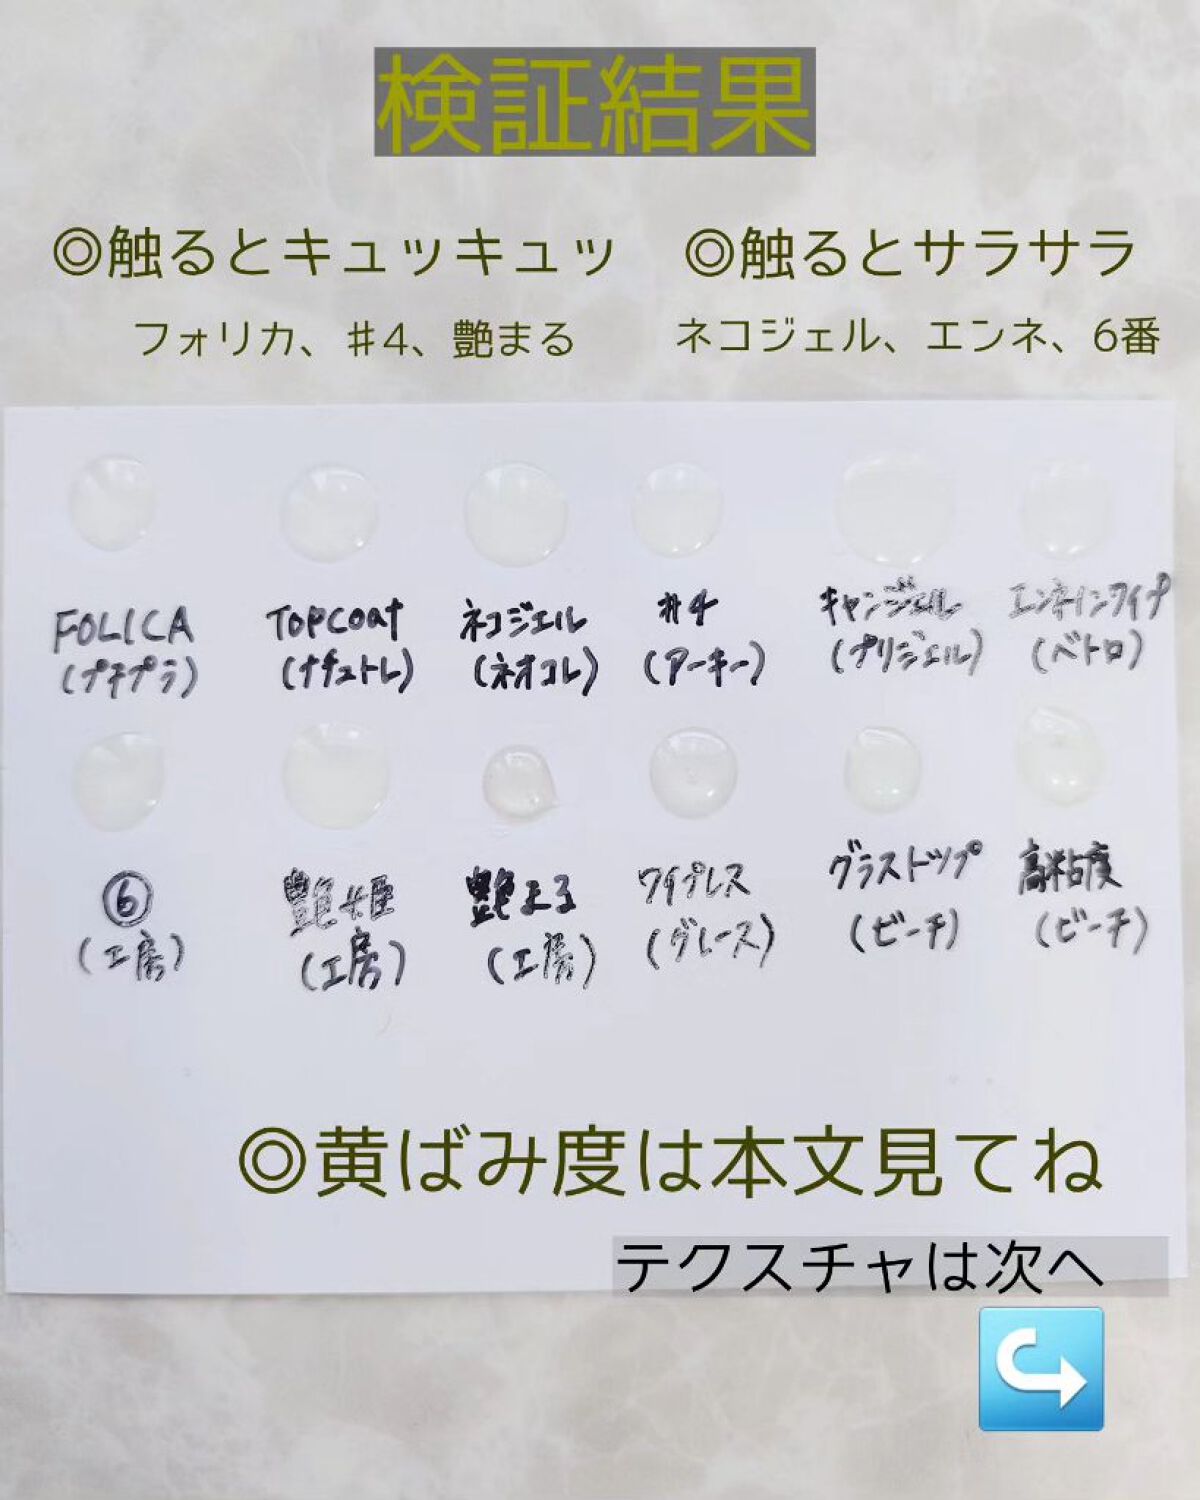 検証結果
◎触るとキュッキュッ
フォリカ、♯4、艶まる
◎触るとサラサラ
ネコジェル、エンネ、6番
FOLICA
(プチプラ)
TOPCOAT
(ナチュトレ)
ネコジェル
(ネオコレ)
#4
(アーキー)
キャンジェル
(プリジェル)
エンネノンワイプ
(ベトロ)
⑥
(工房)
艶姫
(工房)
艶まる
(工房)
ワイプレス
(グレース)
グラストップ
(ビーチ)
高粘度
(ビーチ)
◎黄ばみ度は本文見てね
テクスチャは次へ